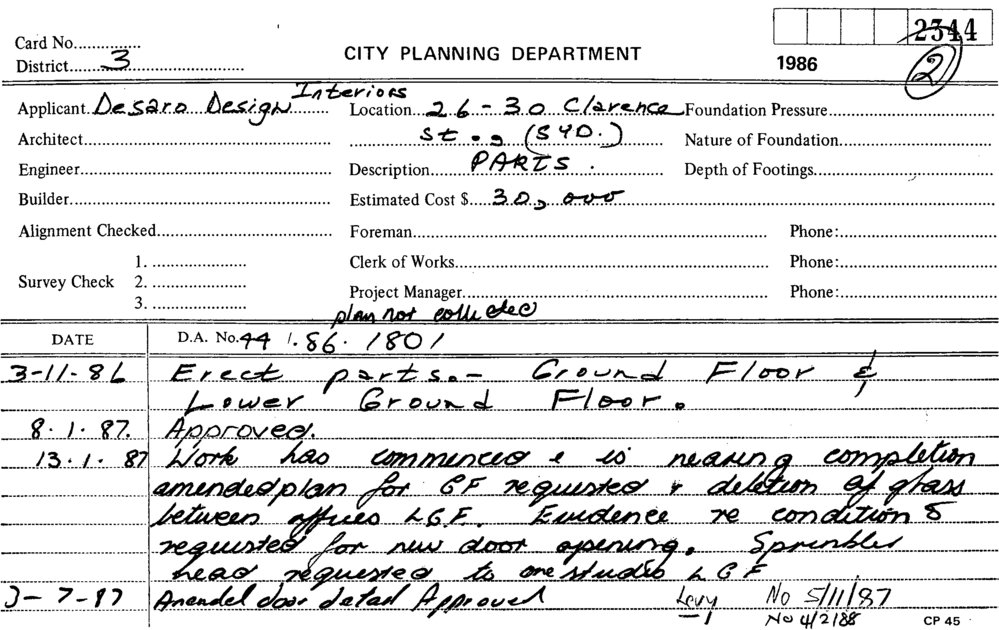 2344
Card No.
CITY PLANNING DEPARTMENT
District 3
1986
2
Interiors
Applicant Desaro Design
Location 26-30 Clarence
Foundation Pressure
Architect
St., (SYD.)
Nature of Foundation
Engineer
Description PARTS.
Depth of Footings
Builder
Estimated Cost $ 30,000
Alignment Checked
Foreman
Phone:
1.
Clerk of Works
Phone:
Survey Check 2.
3.
Project Manager
Phone:
plan not collected
DATE
D.A. No. 44.86.1801
3-11-86 Erect parts.- Ground Floor &
Lower Ground Floor.
8.1.87. Approved.
13.1.87 Work has commenced & is nearing completion
amended plan for GF requested & deletion of glass
between offices L.G.F. Evidence re condition 5
requested for new door opening. Sprinkler
head requested to one studio LGF
3-7-87 Amended door detail Approved Levy No 5/11/87
No 4/2/88
CP 45